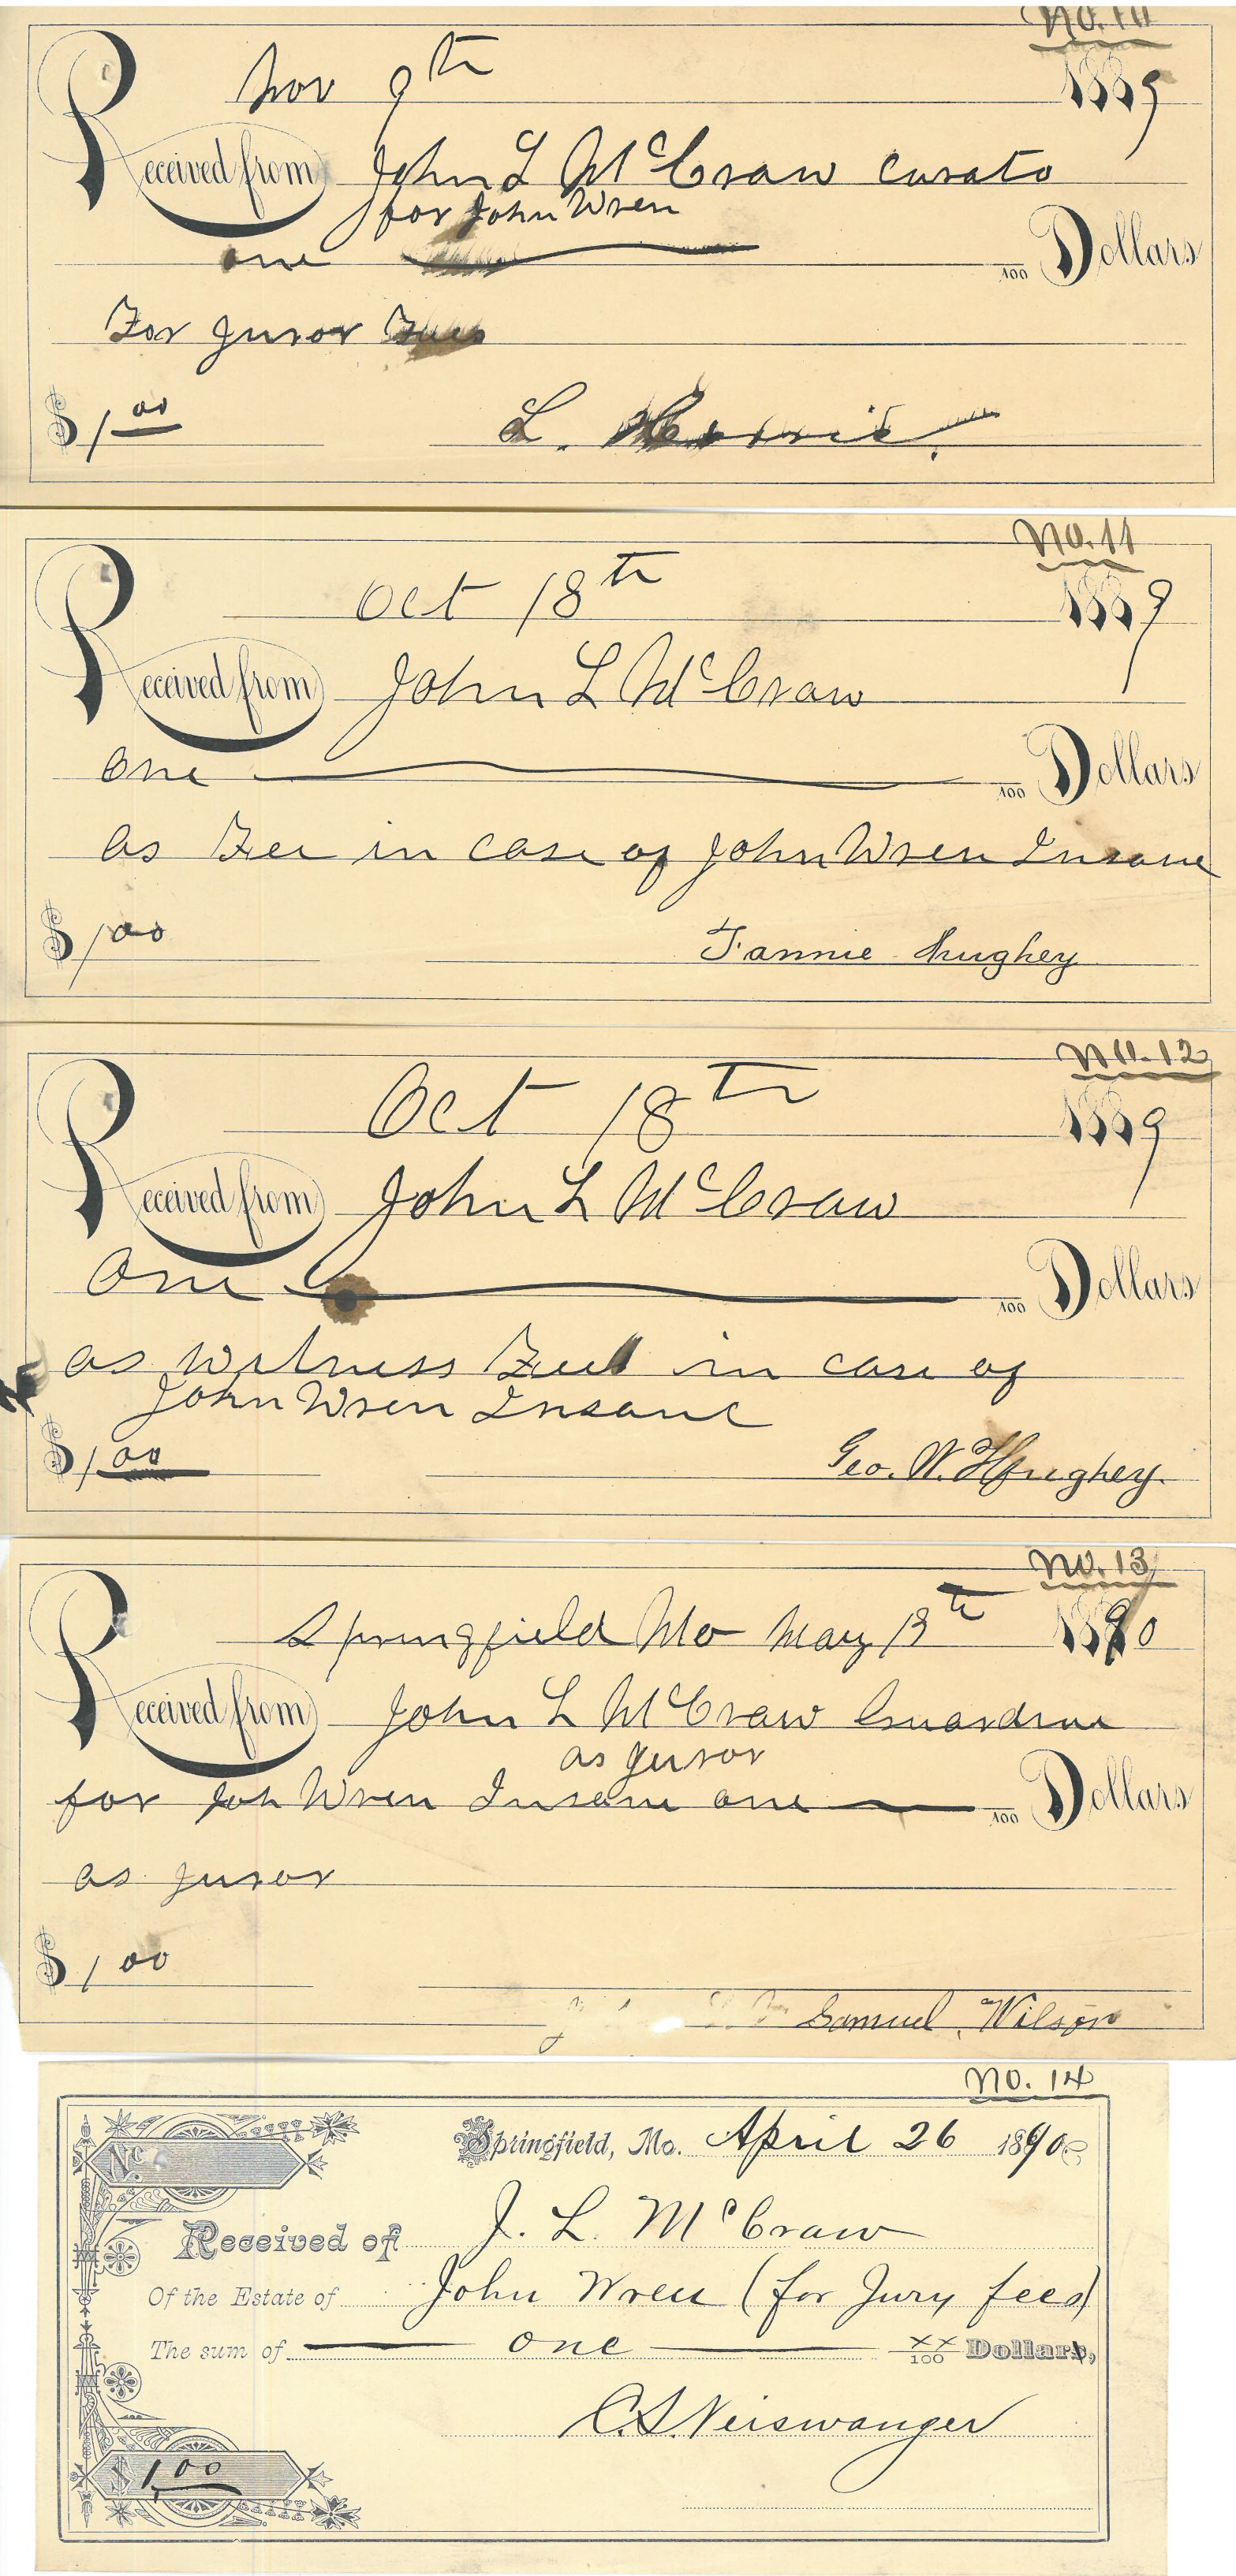 No. 10
Nov 9th 1889
Received from John L McCraw Curato
for John Wren
one /100 Dollars
For Juror Fees
$1.00 L.
No. 11
Oct 18th 1889
Received from John L McCraw
One /100 Dollars
as Fee in case of John Wren Insane
$1.00
Fannie Hughey
No. 12
Oct 18th 1889
Received from John L McCraw
One /100 Dollars
as Witness Fee in case of
John Wren Insane
$1.00 Geo. W. Hughey.
No. 13
Springfield Mo May 13th 1890
Received from John L McCraw Guardian
as juror
for Joh Wren Insane one /100 Dollars
as juror
$1.00
Samuel Wilson
No. 14
Springfield, Mo. April 26 1890
Received of J. L. McCraw
Of the Estate of John Wren (for Jury fees)
The sum of one xx/100 Dollars,
C. S. Neiswanger
$1.00